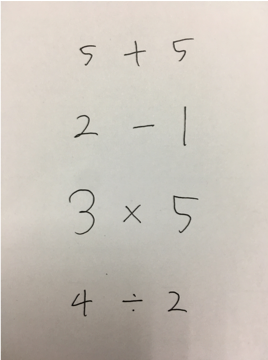 5 + 5
2 - 1
3 × 5
4 ÷ 2